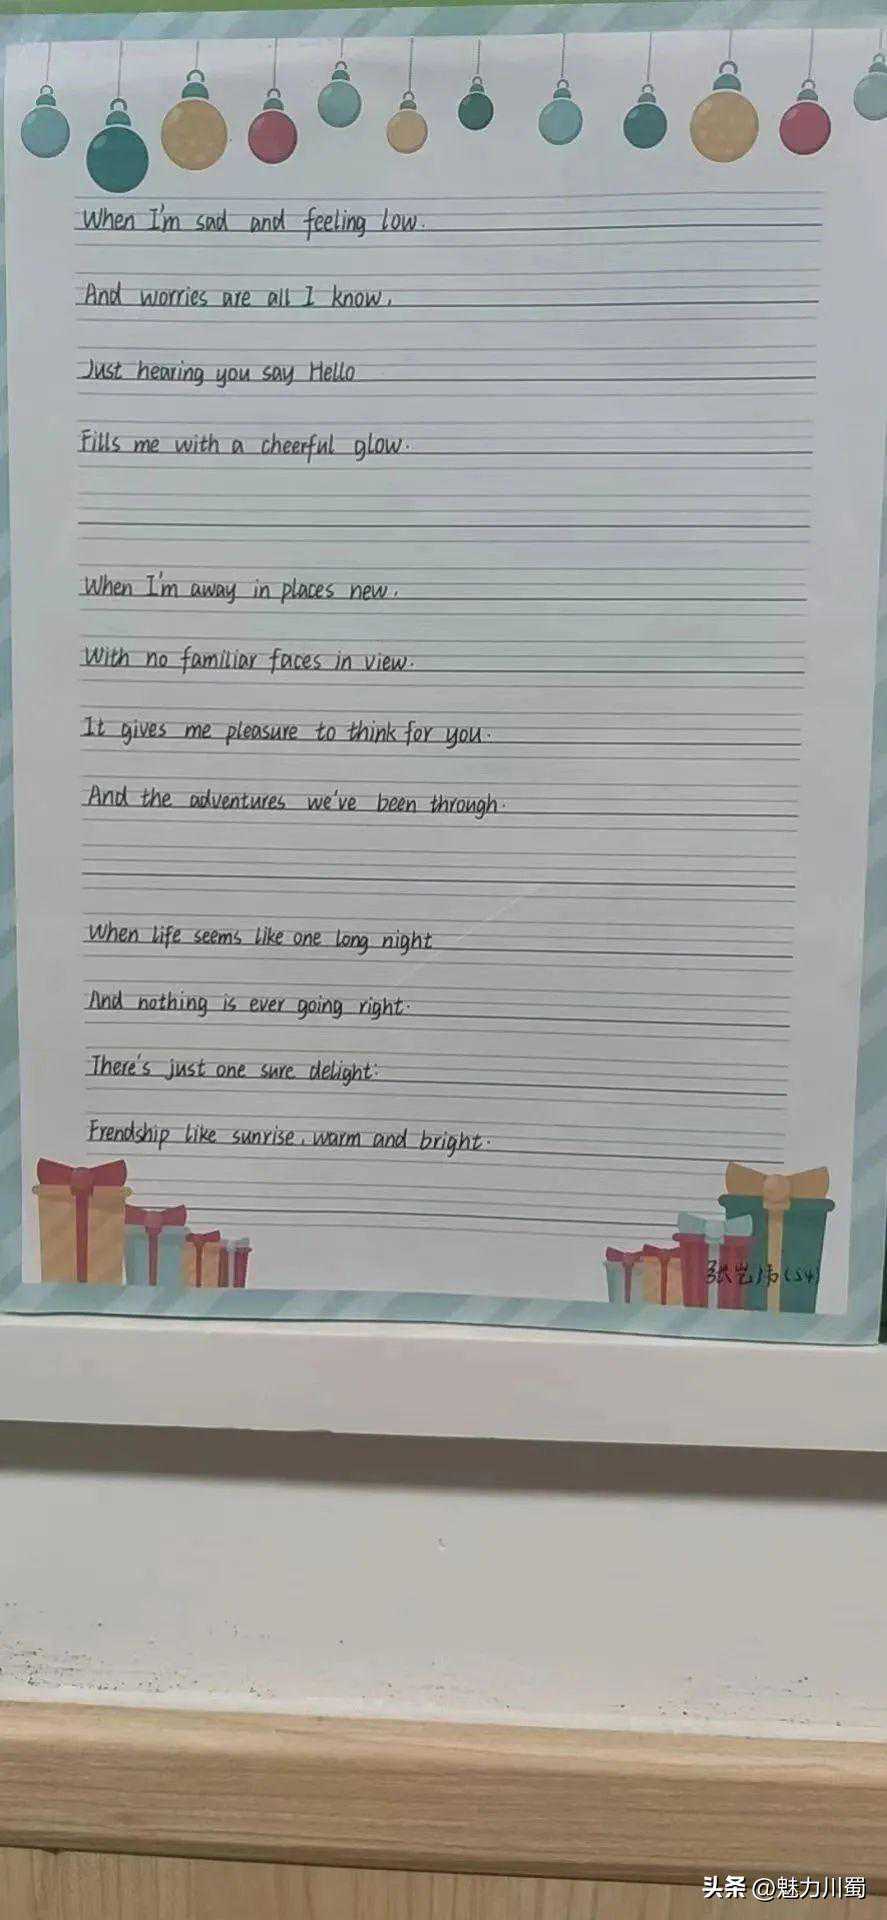 When I'm sad and feeling low.
And worries are all I know,
Just hearing you say Hello
Fills me with a cheerful glow.
When I'm away in places new,
With no familiar faces in view.
It gives me pleasure to think for you.
And the adventures we've been through.
When life seems like one long night
And nothing is ever going right.
There's just one sure delight:
Frendship like sunrise, warm and bright.
(54)
头条 @魅力川蜀